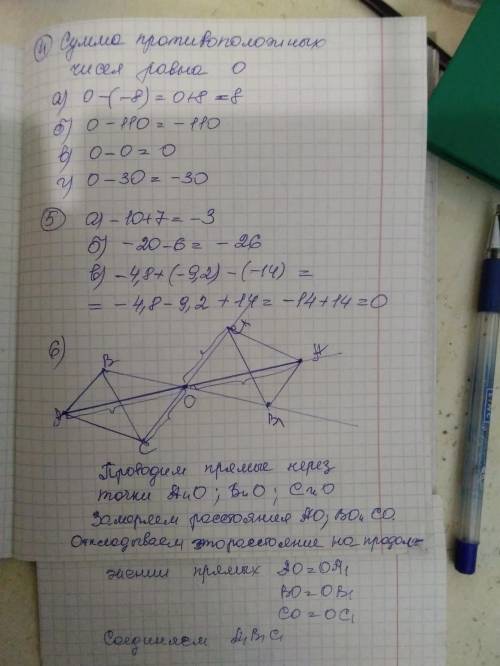 4) Сумма противоположных
чисел равна 0
а) 0-(-8) = 0+8 = 8
б) 0-110 = -110
в) 0-0 = 0
г) 0-30 = -30
5) а) -10+7 = -3
б) -20-6 = -26
в) -4,8+(-9,2)-(-14) =
= -4,8-9,2+14 = -14+14 = 0
6)
B
O
B1
C
Проводим прямые через
точки A и O; B и O; C и O
Замеряем расстояния AO, BO и CO.
Откладываем это расстояние на продол-
жении прямых AO = OA1
BO = OB1
CO = OC1
Соединяем A1B1C1